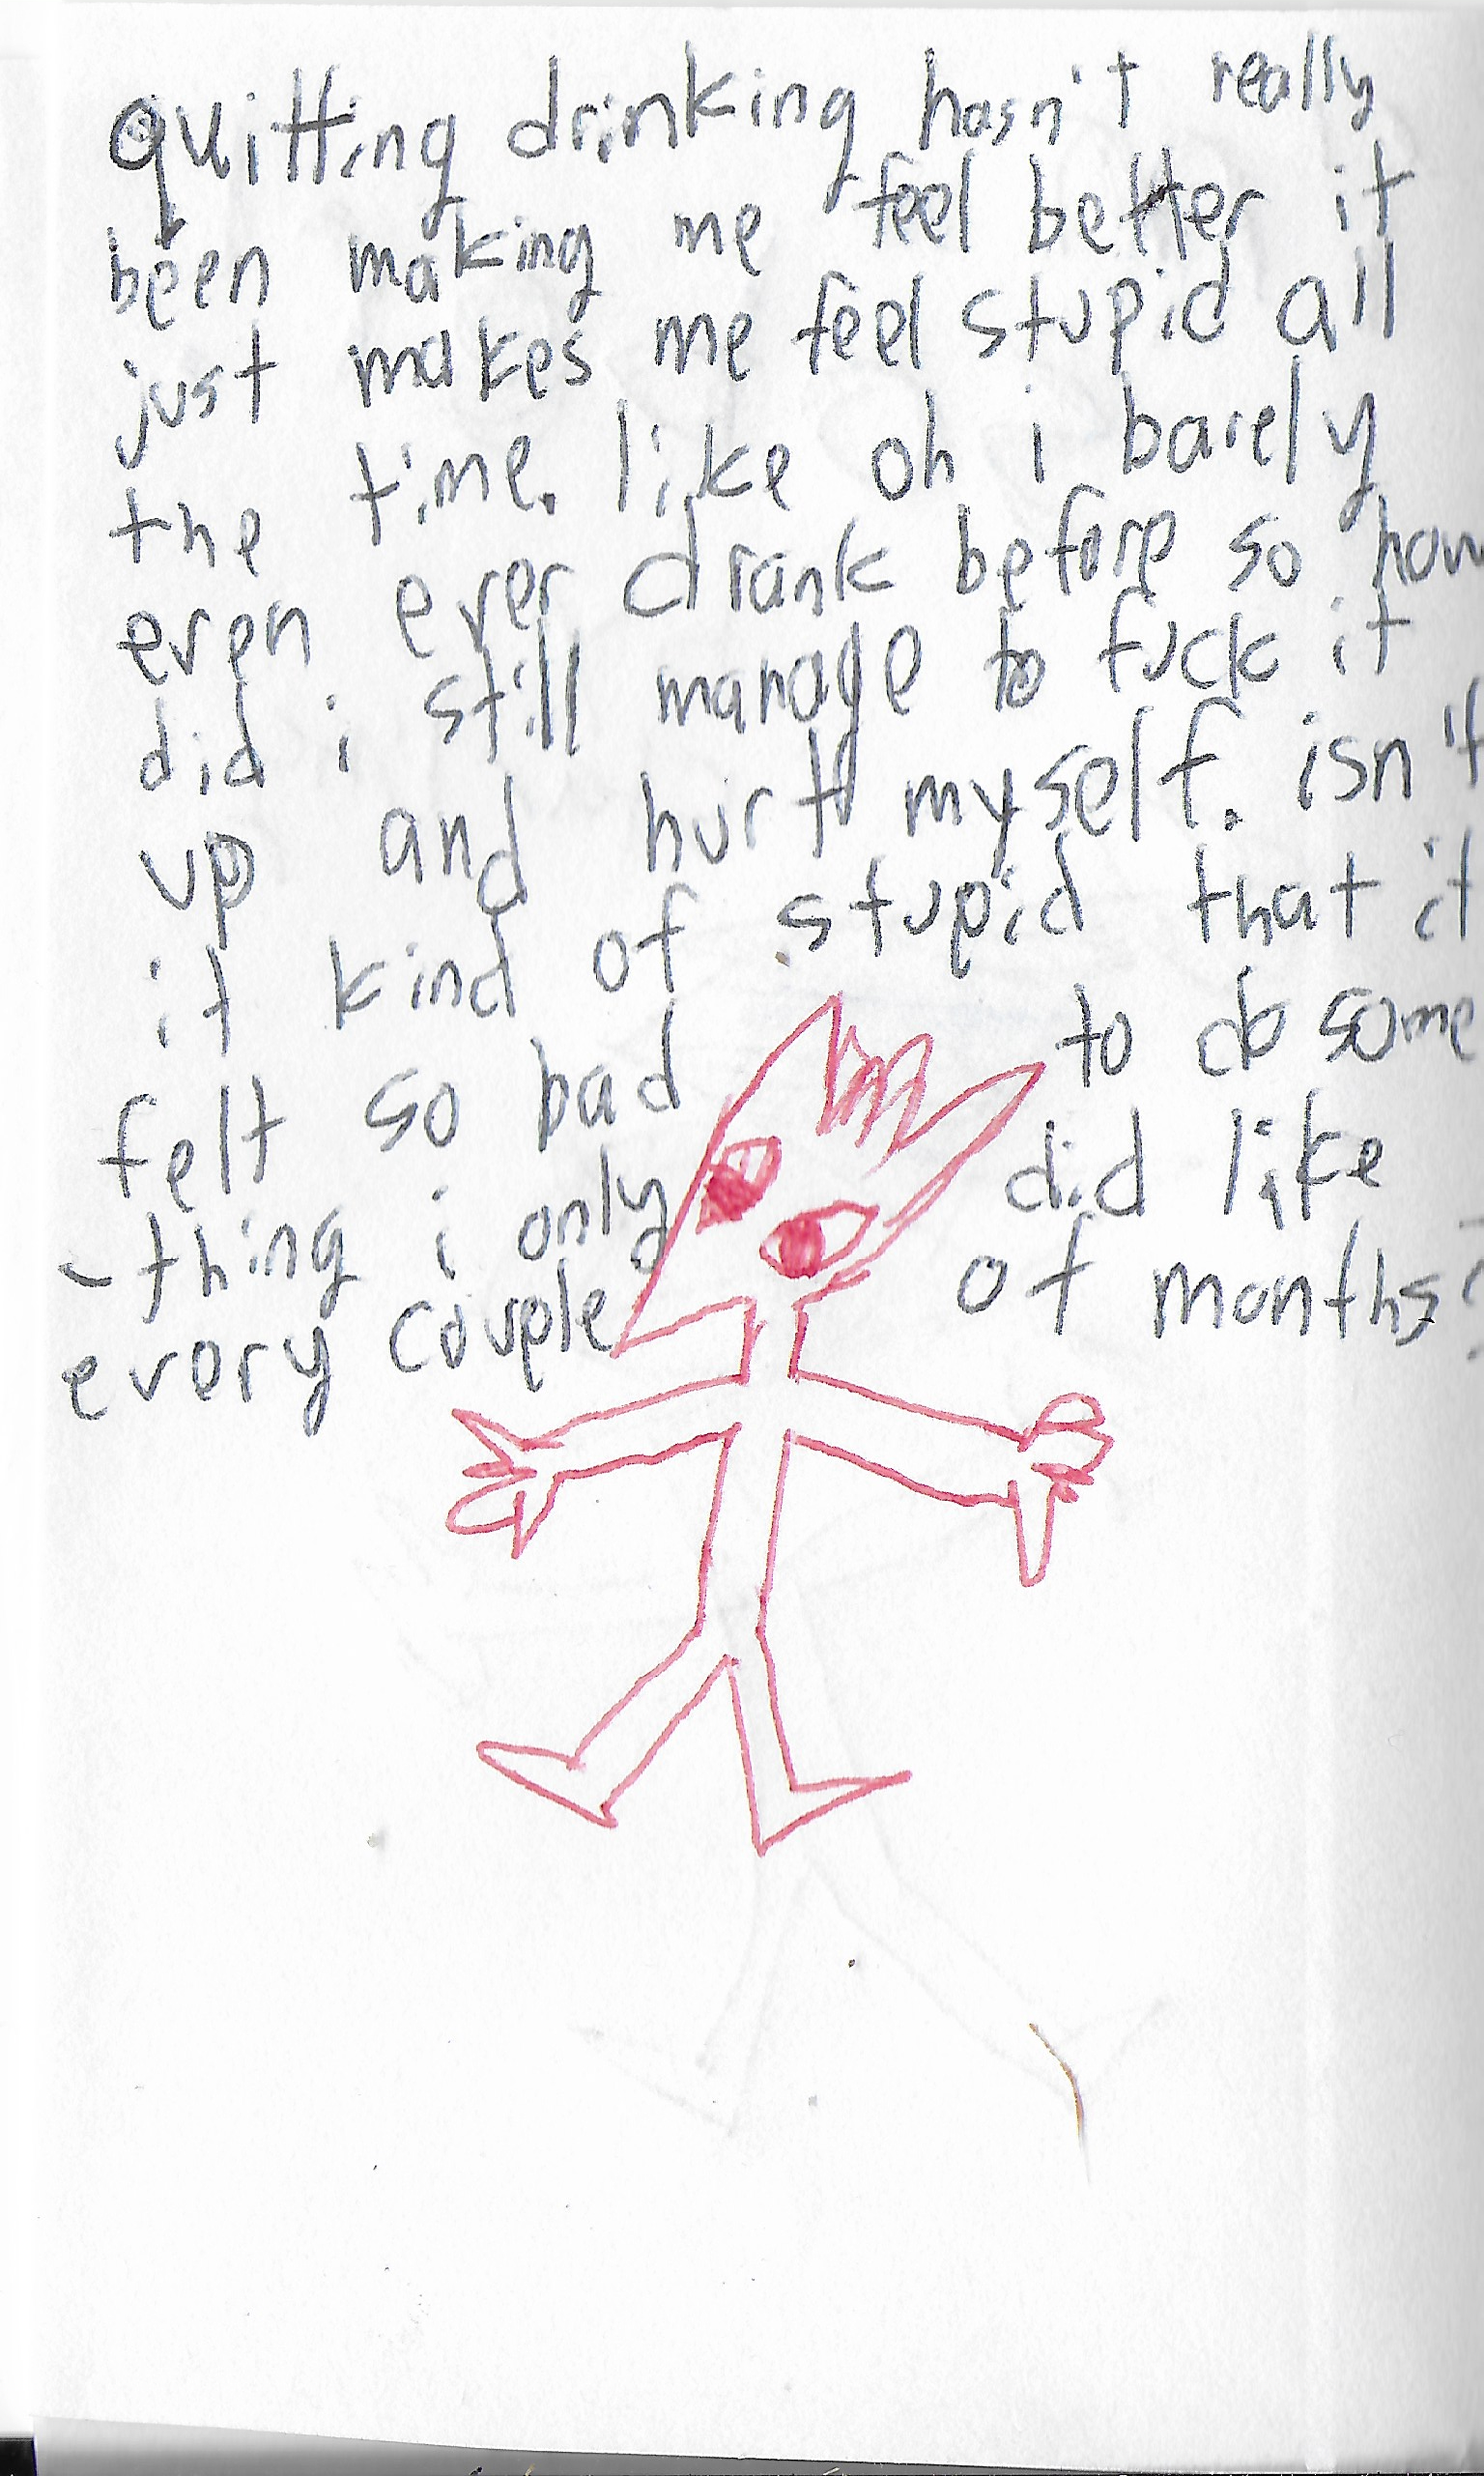 quitting drinking hasn't really
been making me feel better it
just makes me feel stupid all
the time. like oh i barely
even ever drank before so how
did i still manage to fuck it
up and hurt myself. isn't
it kind of stupid that it
felt so bad to do some
-thing i only did like
every couple of months?